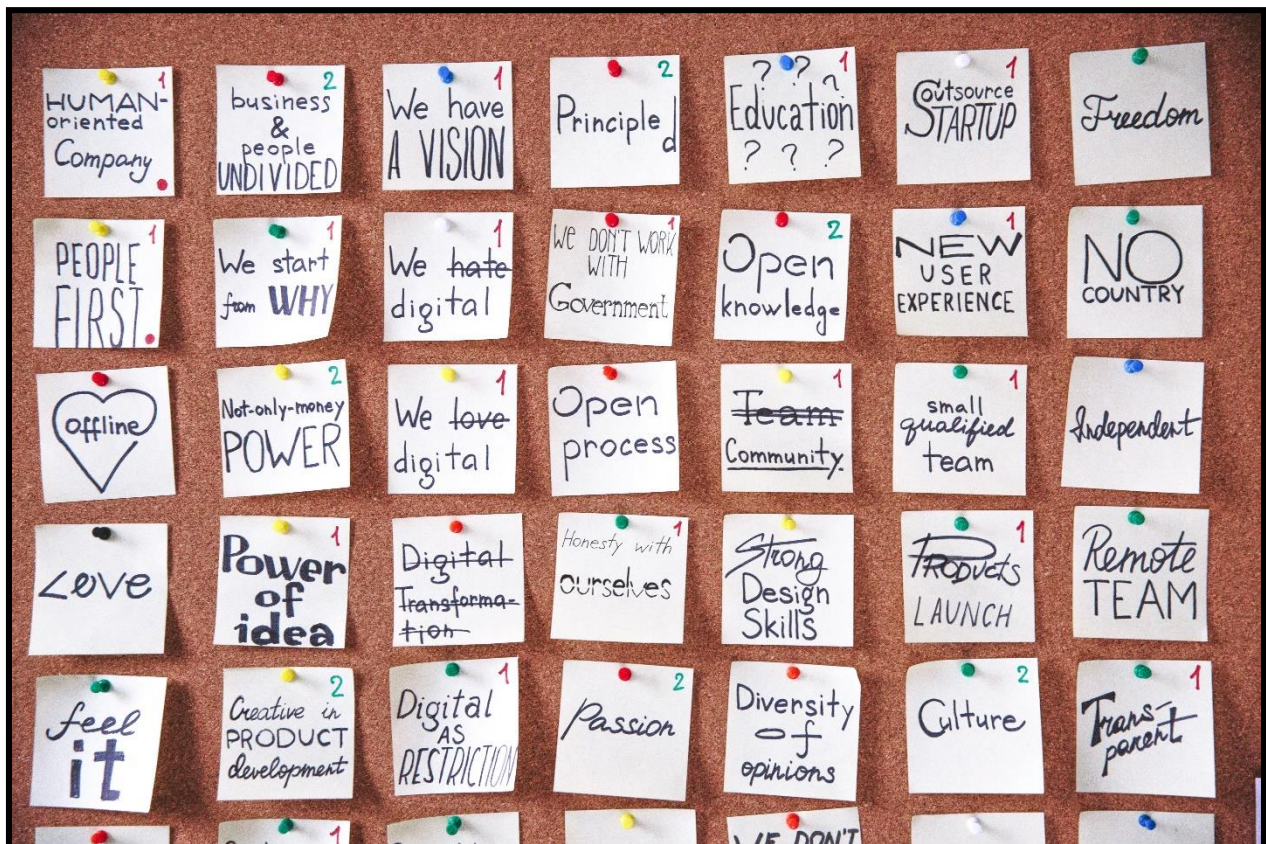 HUMAN- 1
oriented
Company
business 2
&
people
UNDIVIDED
We have 1
A VISION
Principled 2
? ? ? 1
Education
? ? ?
Outsource 1
STARTUP
Freedom
PEOPLE 1
FIRST
We start 1
from WHY
We hate 1
digital
WE DON'T WORK 1
WITH
Government
Open 2
knowledge
NEW 1
USER
EXPERIENCE
NO
COUNTRY
offline
Not-only-money 2
POWER
We love 1
digital
Open
process
Team 1
Community
small 1
qualified
team
Independent
Love
Power 1
of
idea
Digital
Transforma-
tion
Honesty with 1
ourselves
Strong
Design
Skills
PRODUCTS 1
LAUNCH
Remote
TEAM
feel
it
Creative in 2
PRODUCT
development
Digital 1
AS
RESTRICTION
Passion 2
Diversity
of
opinions
Culture 2
Trans- 1
parent
1
WE DON'T